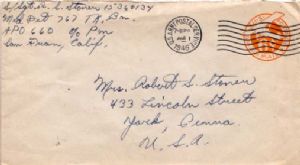 S/Sgt. R. S. Stoner 15360134
Med Det 767 T.K. Bn.
APO 660 c/o P.m
San Fran, Calif.
U.S. ARMY POSTAL SERVICE
1945
Mrs. Robert S. Stoner
433 Lincoln Street
York, Penna
U. S. A.